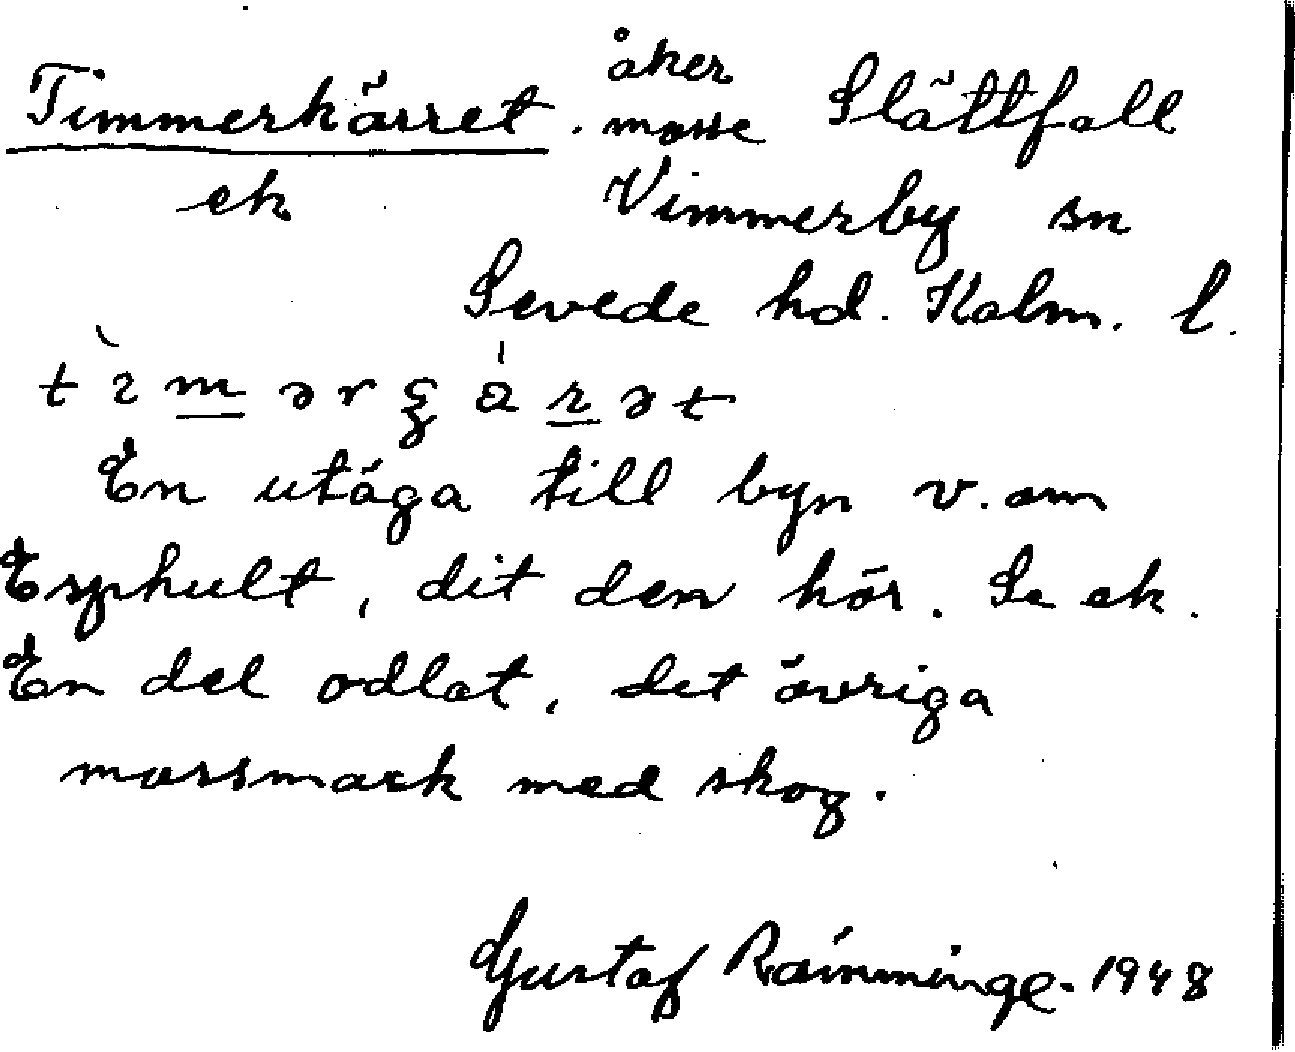 Timmerkärret. åker mosse Slättfall
ek Vimmerby sn
Sevede hd. Kalm. l.
En utäga till byn v. om
Esphult, dit den hör. Se ek.
En del odlat, det övriga
mossmark med skog.
Gustaf Rämminge. 1948